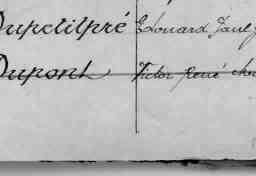 Dupetitpré Edouard Paul
Dupont Victor René